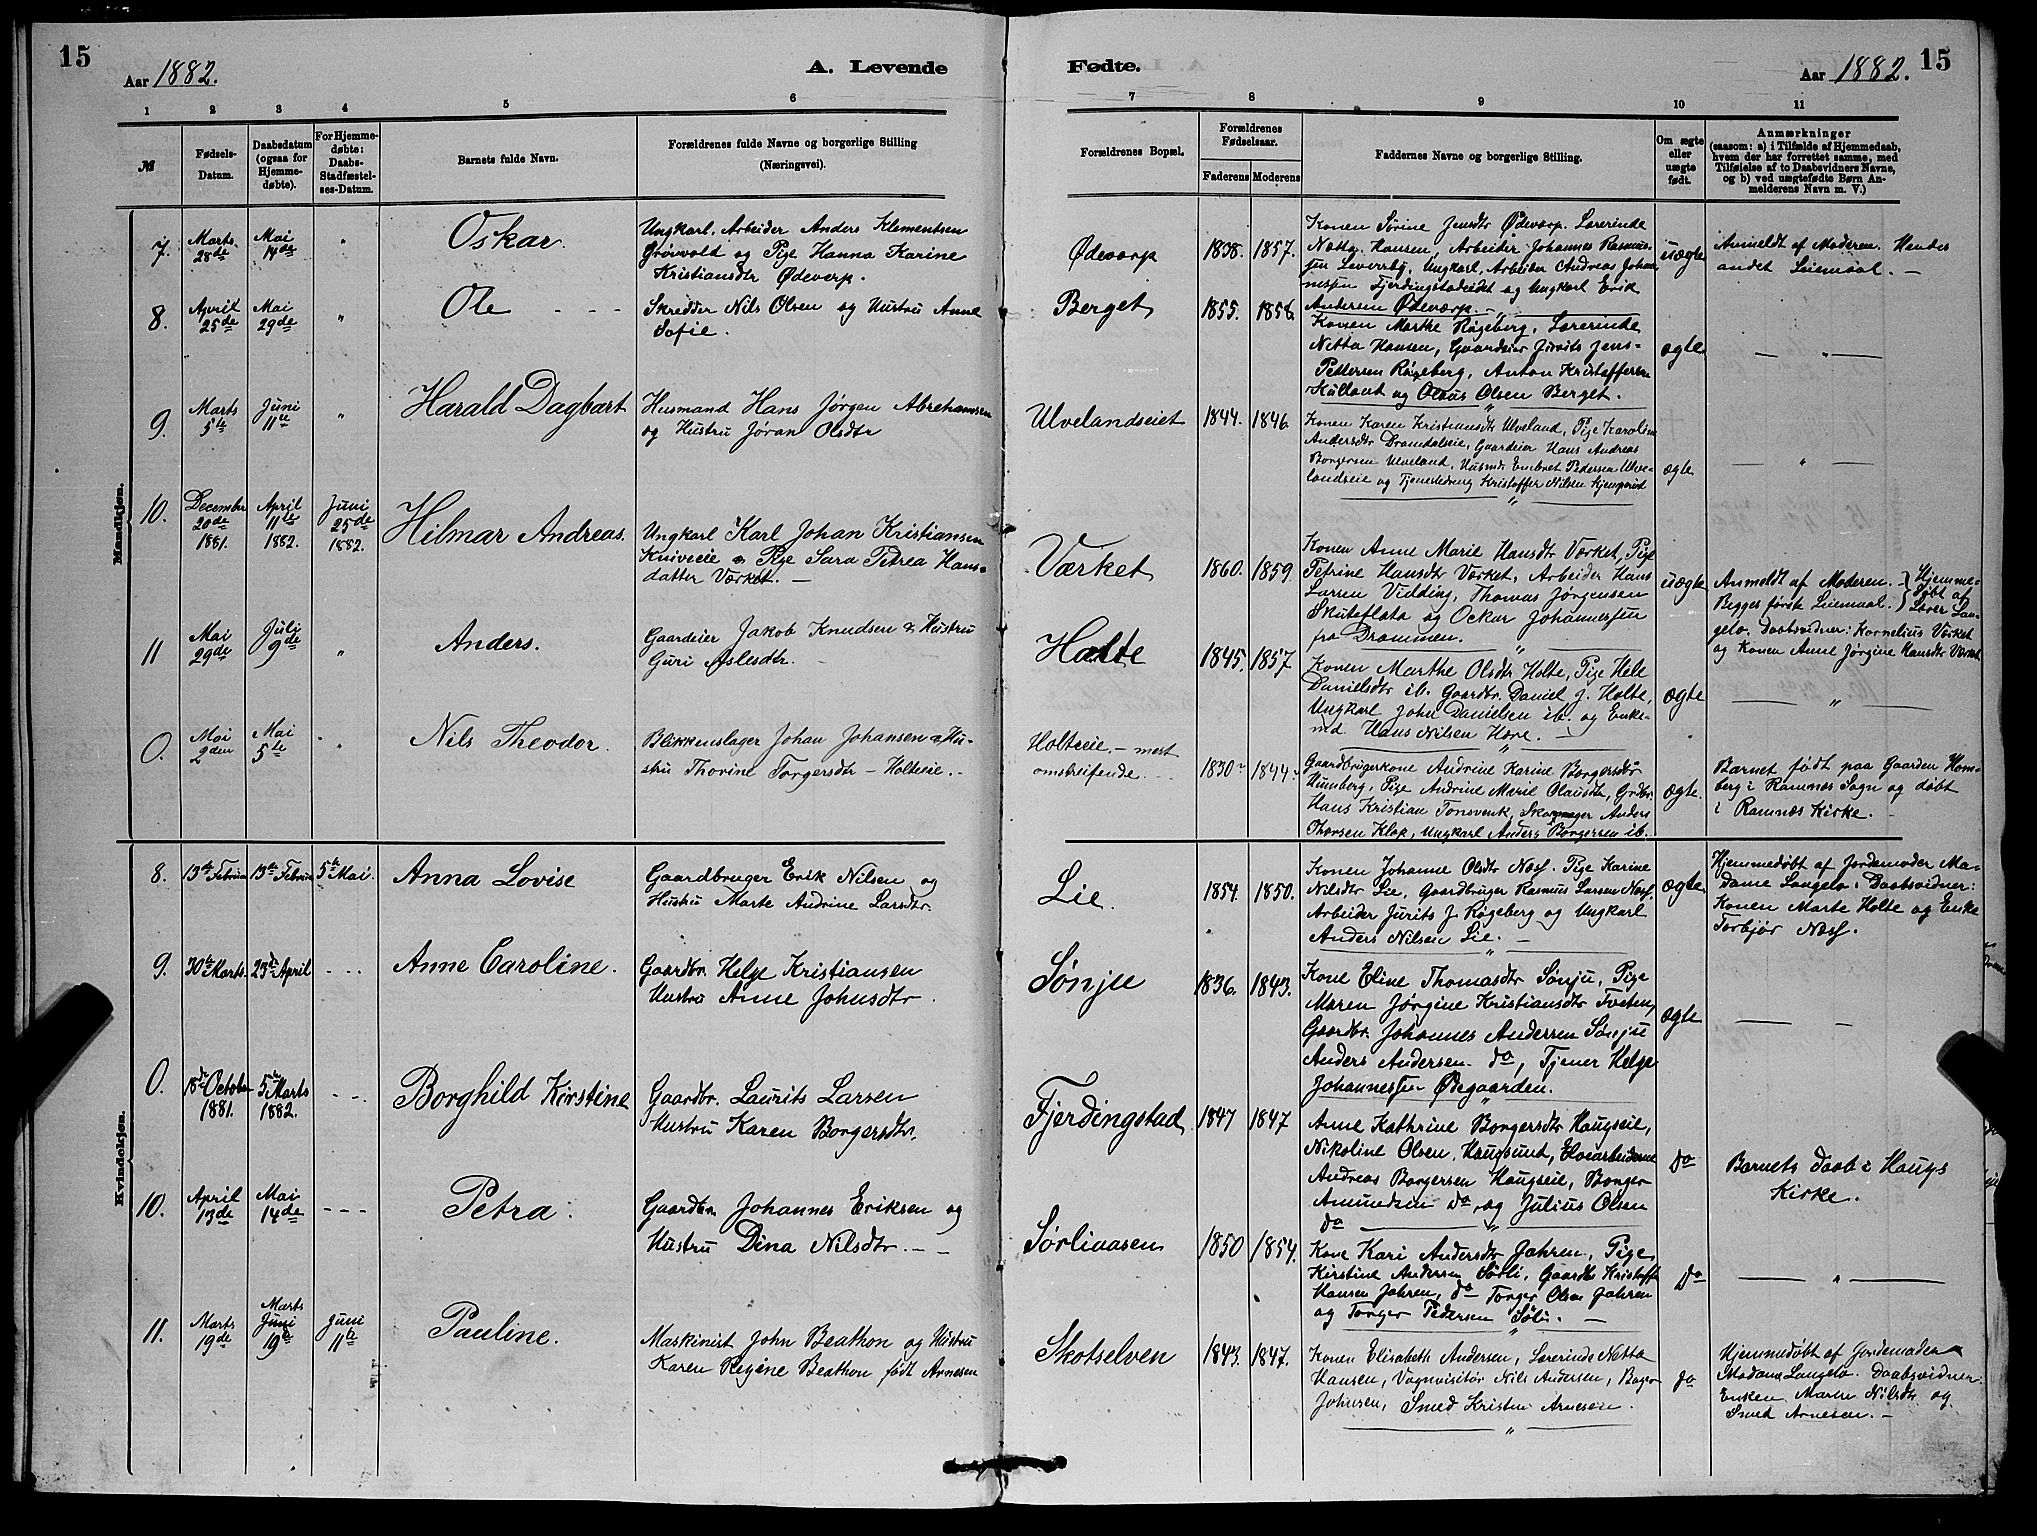 15
Aar 1882.
A. Levende
1 2 3 4 5 6
№
Fødsels-Datum.
Daabsdatum (ogsaa for Hjemmedøbte).
For Hjemmedøbte: Daabs-Stadfæstelses-Datum.
Barnets fulde Navn.
Forældrenes fulde Navne og borgerlige Stilling
(Næringsvei).
Mandkjøn.
7. Marts 28de Mai 14de " Oskar.
Ungkarl. Arbeider Anders Klementsen
Grönvold og Pige Hanna Karine
Kristiansdtr Ødeverp.
8. April 25de Mai 29de " Ole
Skredder Nils Olsen og Hustru Anne
Sofie.
9. Marts 5te Juni 11te " Harald Dagbart
Husmand Hans Jørgen Abrehamsen
og Hustru Jøran Olsdtr
10. December 20de 1881. April 11te 1882. Juni 25de 1882. Hilmar Andreas.
Ungkarl Karl Johan Kristiansen
Kniveeie & Pige Sara Petrea Hans-
datter Værket. —
11 Mai 29de Juli 9de " Anders.
Gaardeier Jakob Knudsen & Hustru
Guri Aslesdtr.
0. Mai 2den Mai 5te " Nils Theodor.
Blikkenslager Johan Johansen & Hu-
stru Thorine Torgersdtr — Holteie.
Kvindekjøn.
8. 13de Februar 13de Februar 5te Mai. Anna Lovise
Gaardbruger Erik Nilsen og
Hustru Marte Andrine Larsdtr.
9. 30te Marts 23de April - - - Anne Caroline.
Gaardbr. Helge Kristiansen
Hustru Anne Johnsdtr.
0. 18de October 1881. 5te Marts 1882. - - - Borghild Kirstine
Gaardbr. Laurits Larsen
Hustru Karen Borgersdtr.
10. April 13de Mai 14de - - - Petra.
Gaardbr. Johannes Eriksen og
Hustru Dina Nilsdtr. — —
11. Marts 19de Marts Juni 19de Juni 11te Pauline.
Maskinist John Beathon og Hustru
Karen Regine Beathon født Arnesen
Fødte.
Aar 1882.
15
7 8 9 10 11
Forældrenes Bopæl.
Forældrenes Fødselsaar.
Faderens Moderens
Faddernes Navne og borgerlige Stilling.
Om ægte eller uægte født.
Anmærkninger
(saasom: a) i Tilfælde af Hjemmedaab,
hvem der har forrettet samme, med
Tilføielse af to Daabsvidners Navne,
og b) ved uægtefødte Børn An-
melderens Navn m. V.)
Ødevarp 1838. 1857.
Konen Sørine Jensdtr Ødevarp. Lærerinde
Netta Hansen, Arbeider Johannes Rasmus-
sen Leversby, Ungkarl, Arbeider Andreas Johan-
nesen Fjerdingstadeiet og Ungkarl Erik
Andersen Ødevarp. —
uægte
Anmeldt af Moderen. Hendes
andet Leiemaal. —
Berget 1855. 1858.
Konen Marthe Rågeberg, Lærerinde
Netta Hansen, Gaardeier Jurits Jens-
Pettersen Rågeberg, Anton Kristoffersen
Kulland og Olaus Olsen Berget.
ægte
— " —
Ulvelandseiet 1844. 1846.
Konen Karen Kristiansdtr Ulveland, Pige Karoline
Andersdtr Dramdaleie, Gaardeier Hans Andreas
Borgersen Ulveland, Husmd. Embret Pedersen Ulve-
landseie og Tjenestedreng Kristoffer Nilsen
ægte
— " —
Værket 1860. 1859.
Konen Anne Marie Hansdtr Værket, Pige
Petrine Hansdtr Værket, Arbeider Hans
Larsen Vidding, Thomas Jørgensen
Skuteflata og Oskar Johannessen
fra Drammen.
uægte
Anmeldt af Moderen. — Hjemme-
Begges første Leiemaal. døbt af
Lærer Lan-
gelo. Daabsvidner: Kornelius Værket
og Konen Anne Jørgine Hansdtr Værket
Holte 1845. 1857
Konen Marthe Olsdtr Holte, Pige Hele
Danielsdtr ib. Gaardbr. Daniel J. Holte,
Ungkarl John Danielsen ib. og Enke-
md. Hans Nilsen Hære. —
ægte
— " —
Holteeie. — mest
omstreifende. 1830 1844
Gaardbrugerkone Andrine Karine Borgersdtr
Humberg, Pige Andrine Marie Olausdtr, Grdbr.
Hans Kristian Tonsvenk, Skomager Anders
Thorsen Klop, Ungkarl Anders Borgersen ib.
ægte.
Barnet født paa Gaarden Hom-
berg i Ramnes Sogn og døbt
i Ramnæs Kirke.
Lie. 1854. 1850.
Konen Johanne Olsdtr Næss. Pige Karine
Nilsdtr Lie, Gaardbruger Rasmus Larsen Næss.
Arbeider Jurits J. Rågeberg og Ungkarl
Anders Nilsen Lie. —
ægte
Hjemmedøbt af Jordemoder Ma-
dame Langelo. Daabsvidner:
Konen Marte Holte og Enke
Torbjør Næss.
Sønju 1836. 1843.
Kone Eline Thomasdtr Sønju, Pige
Maren Jørgine Kristiansdtr Tveten,
Gaardbr. Johannes Andersen Sønju
Anders Andersen do, Tjener Helge
Johannessen Ødegaarden.
ægte
— —
Fjerdingstad 1847 1847
Anne Kathrine Borgersdtr Haugseie,
Nikoline Olsen, Haugsund,
Andreas Borgersen Haugseie, Borger
Amundsen do, og Julius Olsen
do
do
Barnets Daab i Haugs
Kirke.
Sørliaasen 1850 1854.
Kone Kari Andersdtr Jahren, Pige
Kirstine Andersen Sørli, Gaardbr Kristoffer
Hansen Jahren, do Torger Olsen Jahren
og Torger Pedersen Sørli. —
do
— " —
Skotselven 1843. 1847.
Konen Elisabeth Andersen, Lærerinde Netta
Hansen, Vognvisitør Nils Andersen, Bager
Johnsen, Smed Kristen Arnesen.
do
Hjemmedøbt af Jordemoder
Madame Langelo. Daabsvidner:
Enken Marthe Nilsdtr og
Smed Arnesen. —